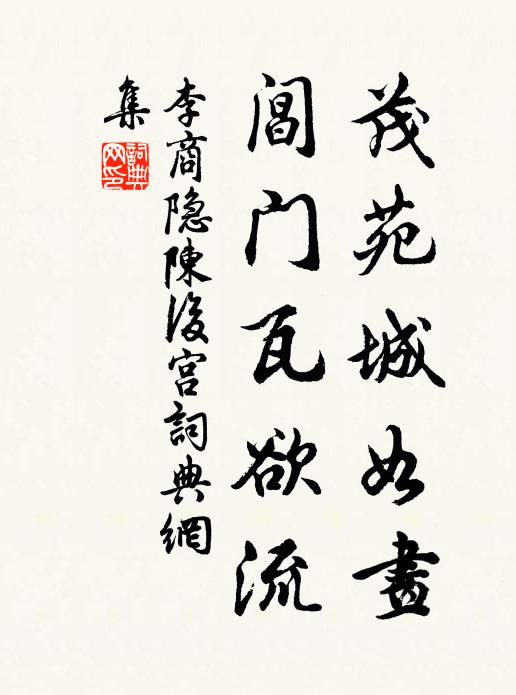 茂苑城如畫
閶门瓦欲流
李商隐陳後宮詞典網
集
詞典网印